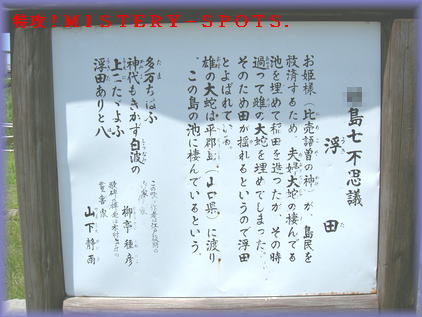 突撃!MISTERY-SPOTS.
島七不思議
浮田
お姫様(比売語曽の神)が、島民を
救済するため、夫婦大蛇の棲んでる
池を埋めて稲田を造ったが、その時
過って雌の大蛇を埋めてしまった。
そのため田が揺れるというので浮田
とよばれている。
雄の大蛇は平郡島(山口県)に渡り
この島の池に棲んでいるという。
多万ちはふ
神代もきかず白波の
上にたゞよふ
浮田ありと八
柳亭種彦
山下静雨